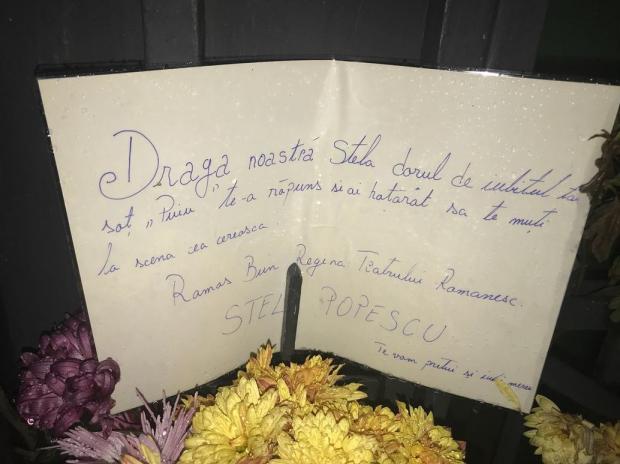 Draga noastră Stela dorul de iubitul tău
soț „Puiu” te-a răpuns si ai hotarât sa te muți
la scena cea cerească
Ramas Bun Regina Teatrului Romanesc.
STEL POPESCU
Te vom prețui și iubi mereu